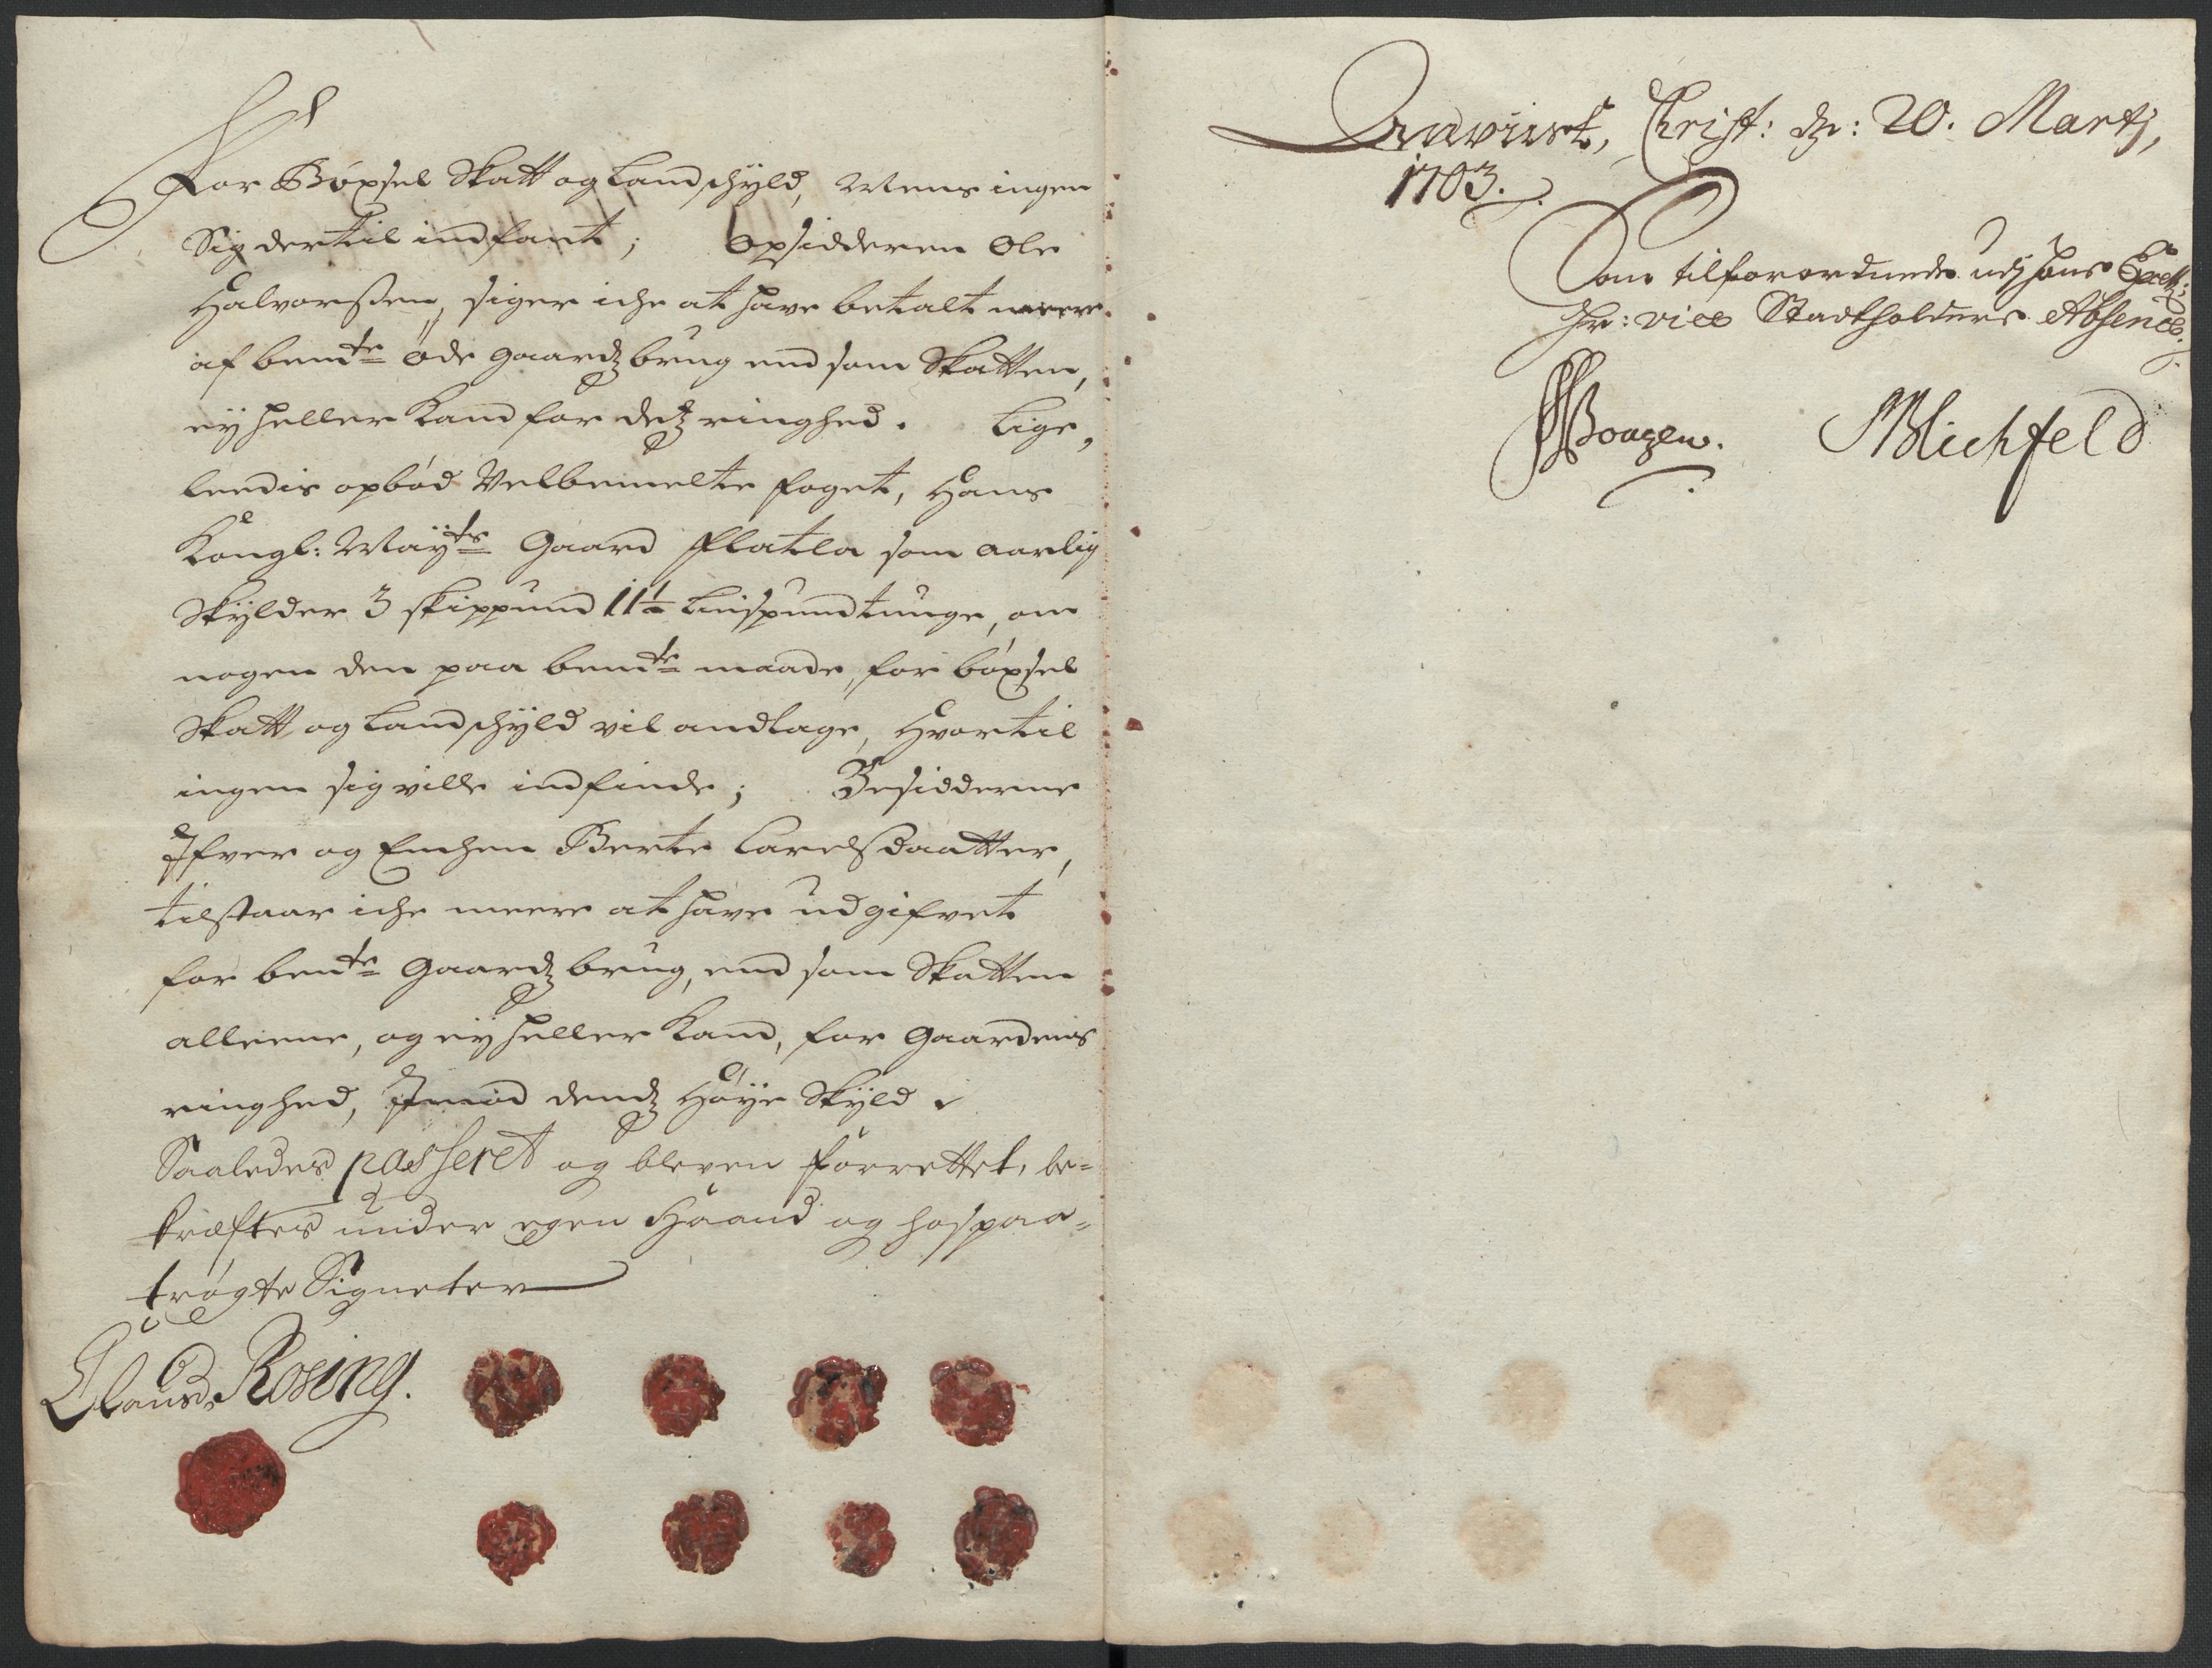 For Böxsel Skatt og Landschyld, Mens ingen
Sig dertil indfant; Opsidderen Ole
Halvorsen, siger iche at have betalt meere
af bemte öde gaardz brug end som Skatten,
ey heller kand for detz ringhed. Lige,
leedis opböd Velbemelte foget, Hans
Kongl: Mayts Gaard Flatla som aarlig
Skylder 3 skippund 11½ Lispund tunge, om
nogen den paa bemte maade, for böxsel
Skatt og Landschyld vil andtage, Hvortil
ingen sig ville indfinde; Besidderne
Ifver og Enchen Berte Carelsdaatter,
tilstaar iche meere at have udgifvet
for bemte Gaardz brug, end som Skatten
alleene, og ey heller kand, for Gaardens
ringhed, Imod dends Höye Skyld.
Saaledes passeret og bleven forrettet, be-
kræftes under egen Haand og hospaa-
trögte Signeter
Claus Rosing.
Anviist, Christ: dn: 20. Martj,
1703.
Som tilforordnede udj hans Excell:
Hr: vice Stadtholders Absence.
Bongen. Blichfeld